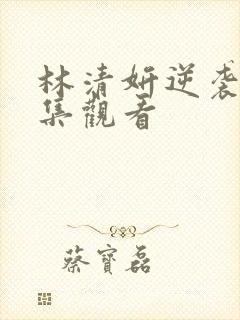 林清妍逆袭
集觀看
蔡寶磊